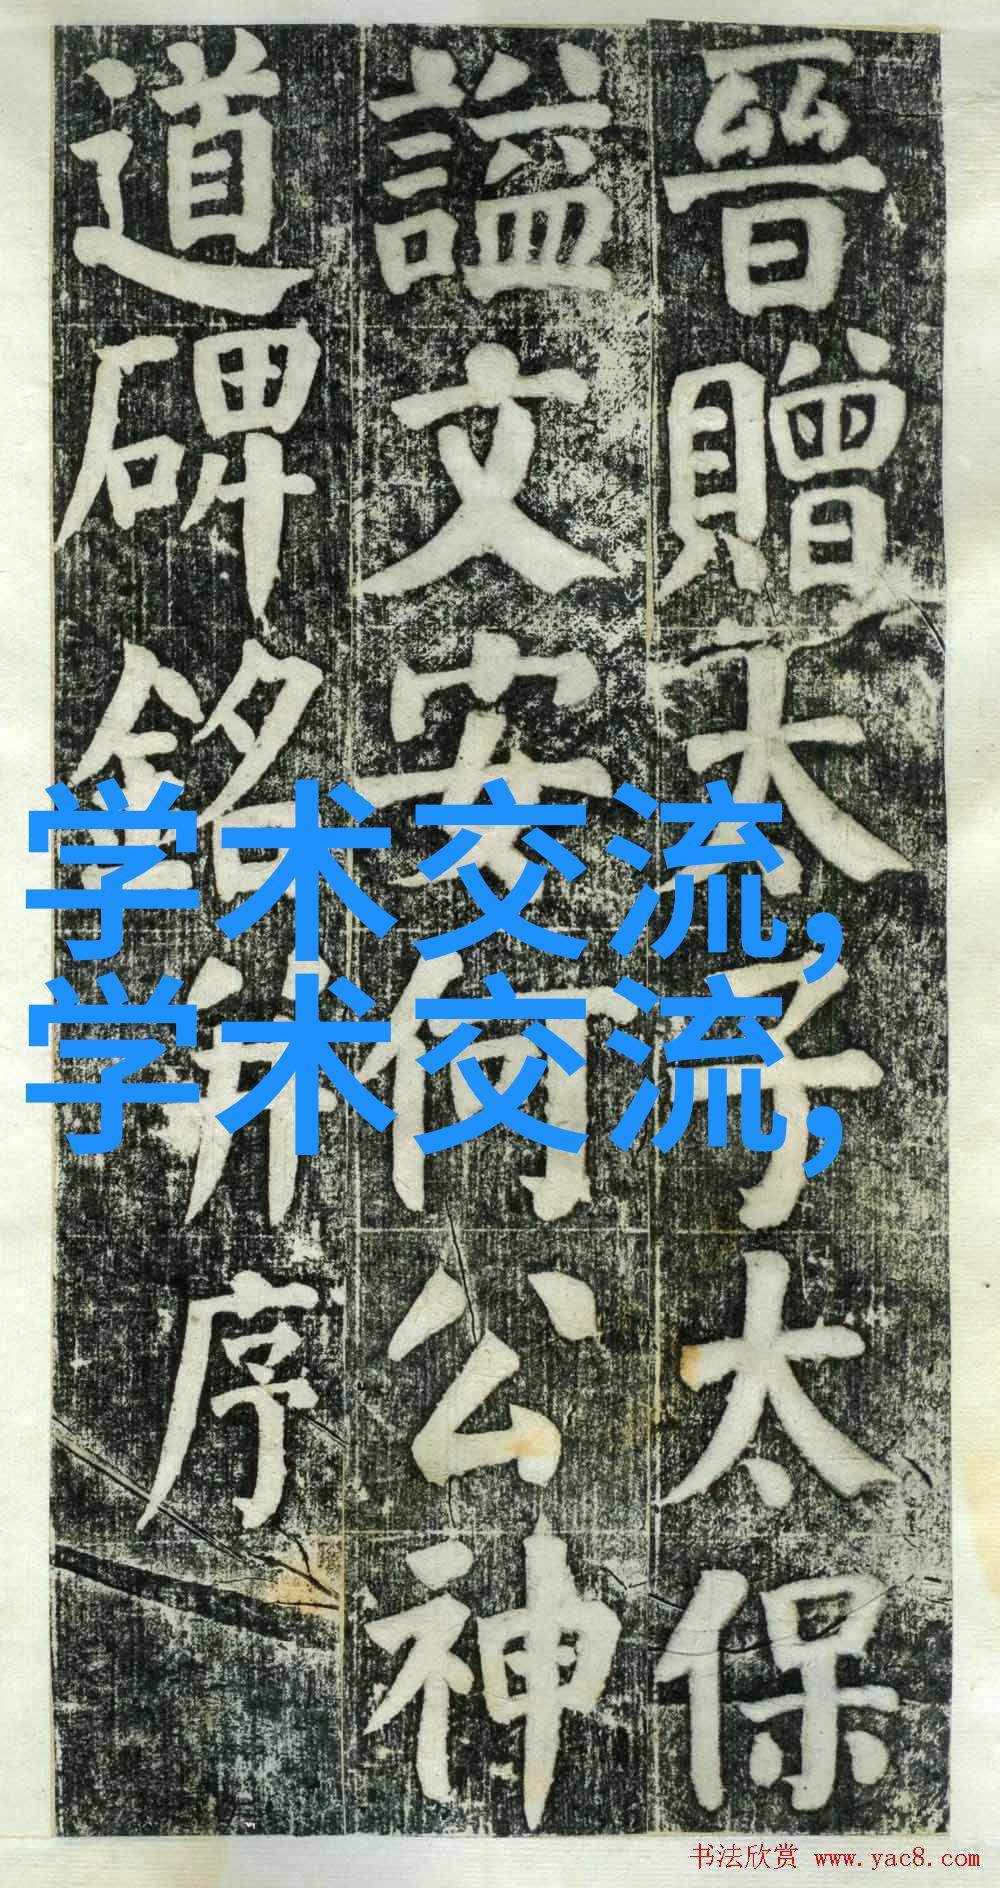 晉贈太子太保
謚文安何公神
道碑銘并序
学术交流,
学术交流,
书法欣赏 www.yac8.com